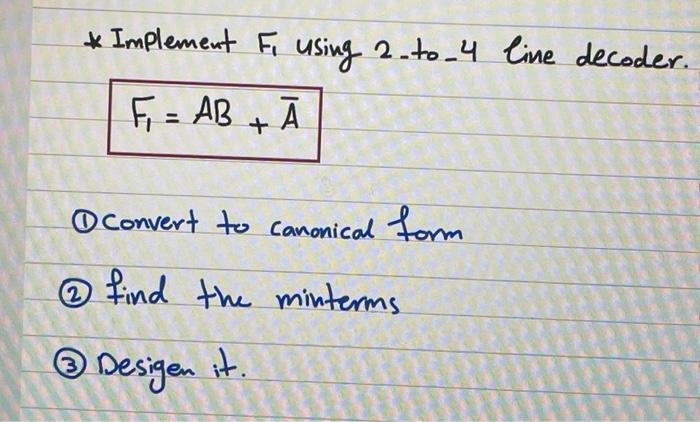 * Implement F₁ using 2-to-4 line decoder.
F₁ = AB + A̅
① Convert to canonical form
② find the minterms
③ Desigen it.